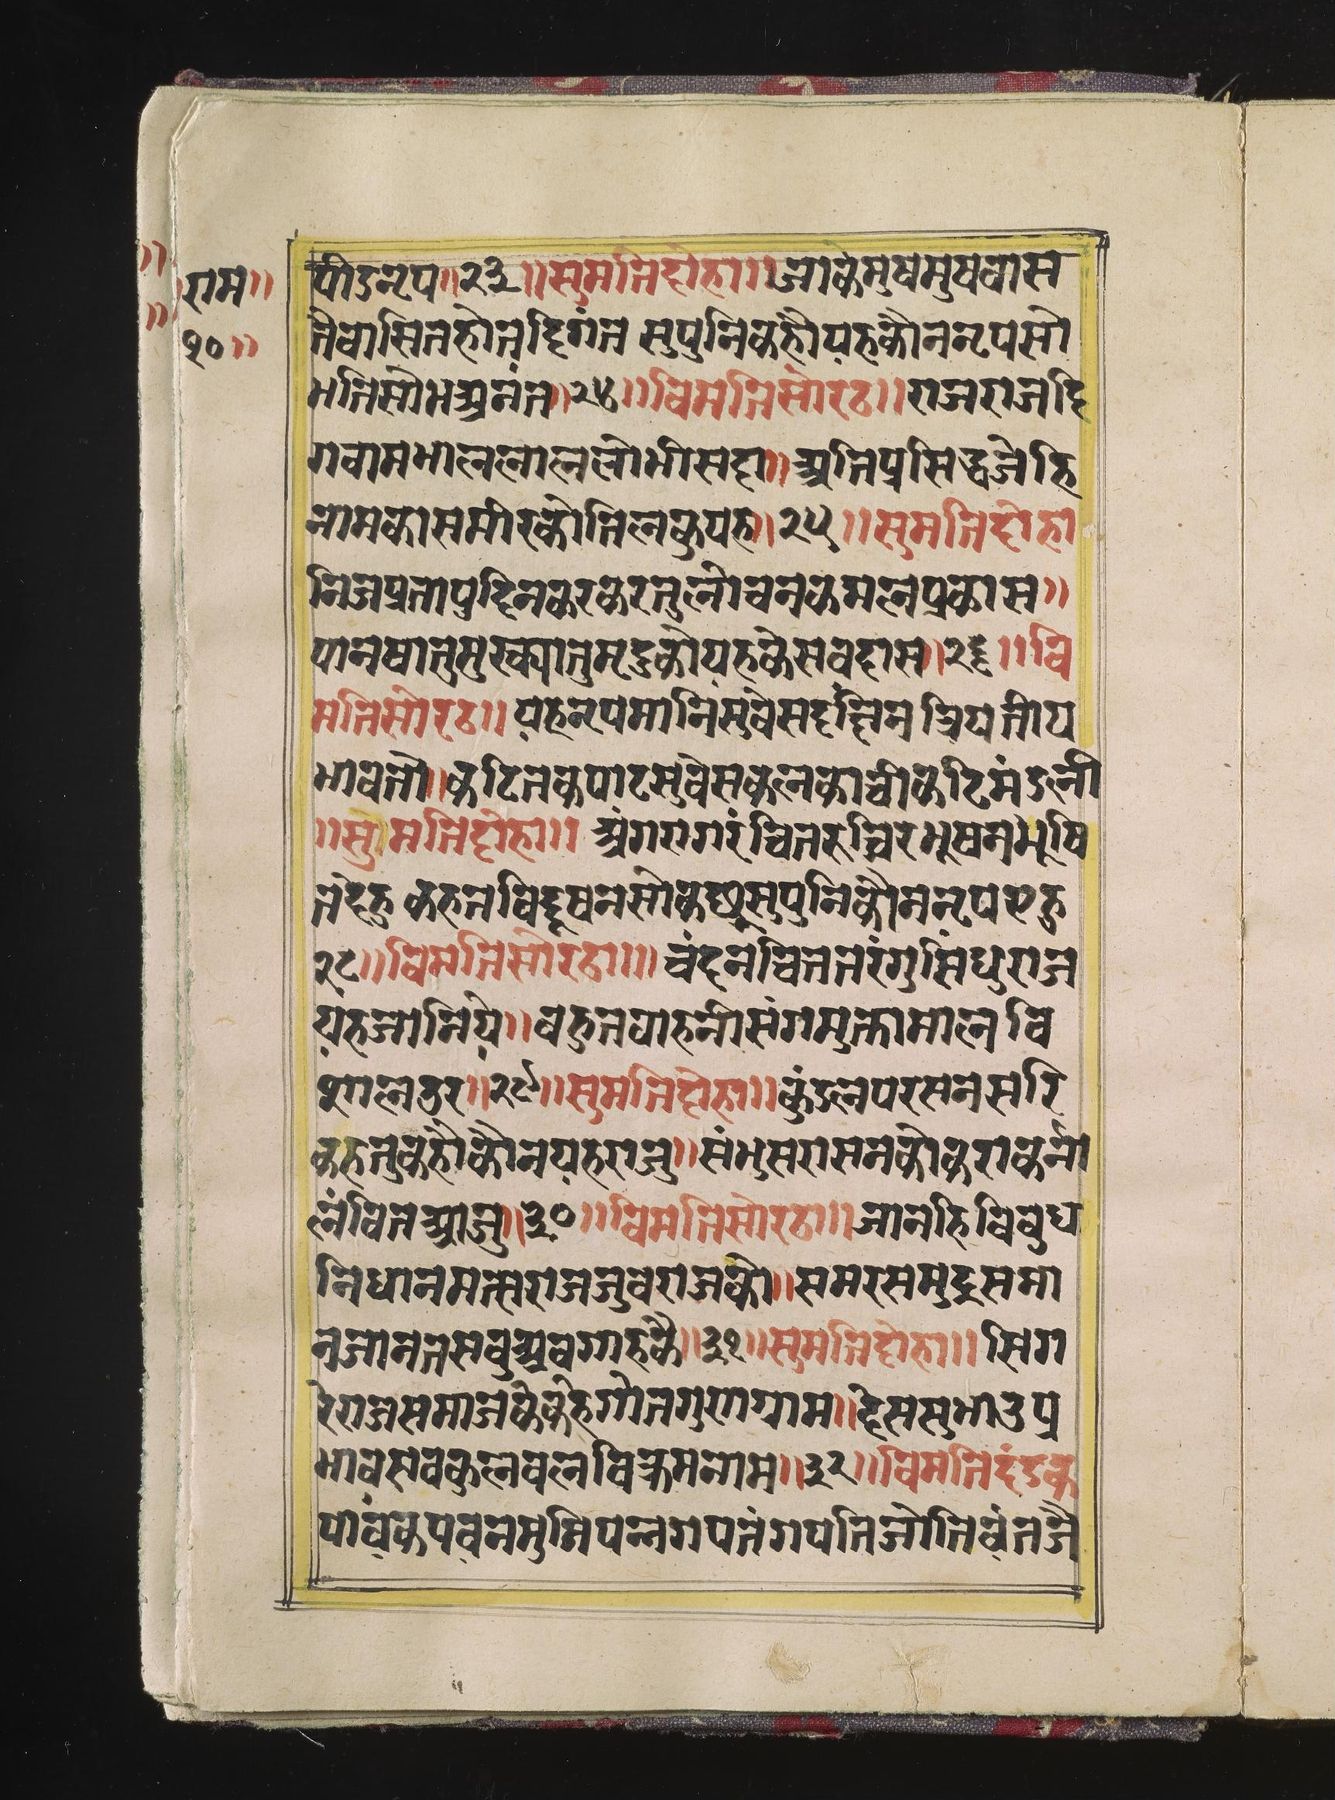 राम॥
१०॥
पीउनृप॥२३॥सुमतिदोहा॥जाकेमुषमुषवास
तैवासितहोतदिगंत सुपुनिकहौयहकौननृपसो
भतिसोभअनंत॥२४॥विमतिसोरठ॥राजराजदि
गवामभाललाललोभीसदा॥अतिप्रसिद्धजेहि
नामकासमीरकोतिलकुयह॥२५॥सुमतिदोहा
निजप्रतापुदिनकरकरतुलोचनकमलप्रकास॥
पानषातुमुस्क्यातुमृदुकोयहकेसवदास॥२६॥वि
मतिसोरठ॥यहनृपमानिसुवेसदछिनत्रियतीय
भावतो॥कटितकपाटसुवेसकलकाचीकटिमंडली
॥सुमतिदोहा॥अंगरागरंचितरुचिरभूषनभूषि
तदेहु कहतविदूषनसोकछूसुपुनिकौननृपएहु
२८॥विमतिसोरठा॥चंदनचिततरंगुसिंधुराज
यहजानिये॥बहुतवाहनीसंगमुक्तामाल वि
शालउर॥२९॥सुमतिदोहा॥कुंडलपरसनसरि
कहतुकहौकौनयहराजु॥संभुसरासनकोकराकर्ना
लंवितआजु॥३०॥विमतिसोरठा॥जानहिविबुध
निधानमत्सराजजुवराजको॥समरसमुद्रसमा
नजानतसवुअवगाहकै॥३१॥सुमतिदोहा॥सिग
रेराजसमाजकेकहेगोतगुराग्राम॥देससुभाउप्र
भावसवकुलवलविक्रमनाम॥३२॥विमतिदंडक
पावकपवनमुनिपन्नगपतंगपतिजोतिवंतजै